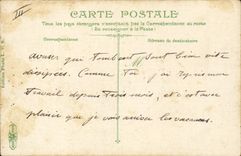 III
CARTE POSTALE
Tous les pays étrangers n'acceptent pas la Correspondance au recto
(Se renseigner à la Poste)
Correspondance
Adresse du destinataire
avance qui tombent sont bien vite
dissipées. Comme toi j'ai repris mon
travail depuis trois mois, et c'est avec
plaisir que je vois arriver les vacances.